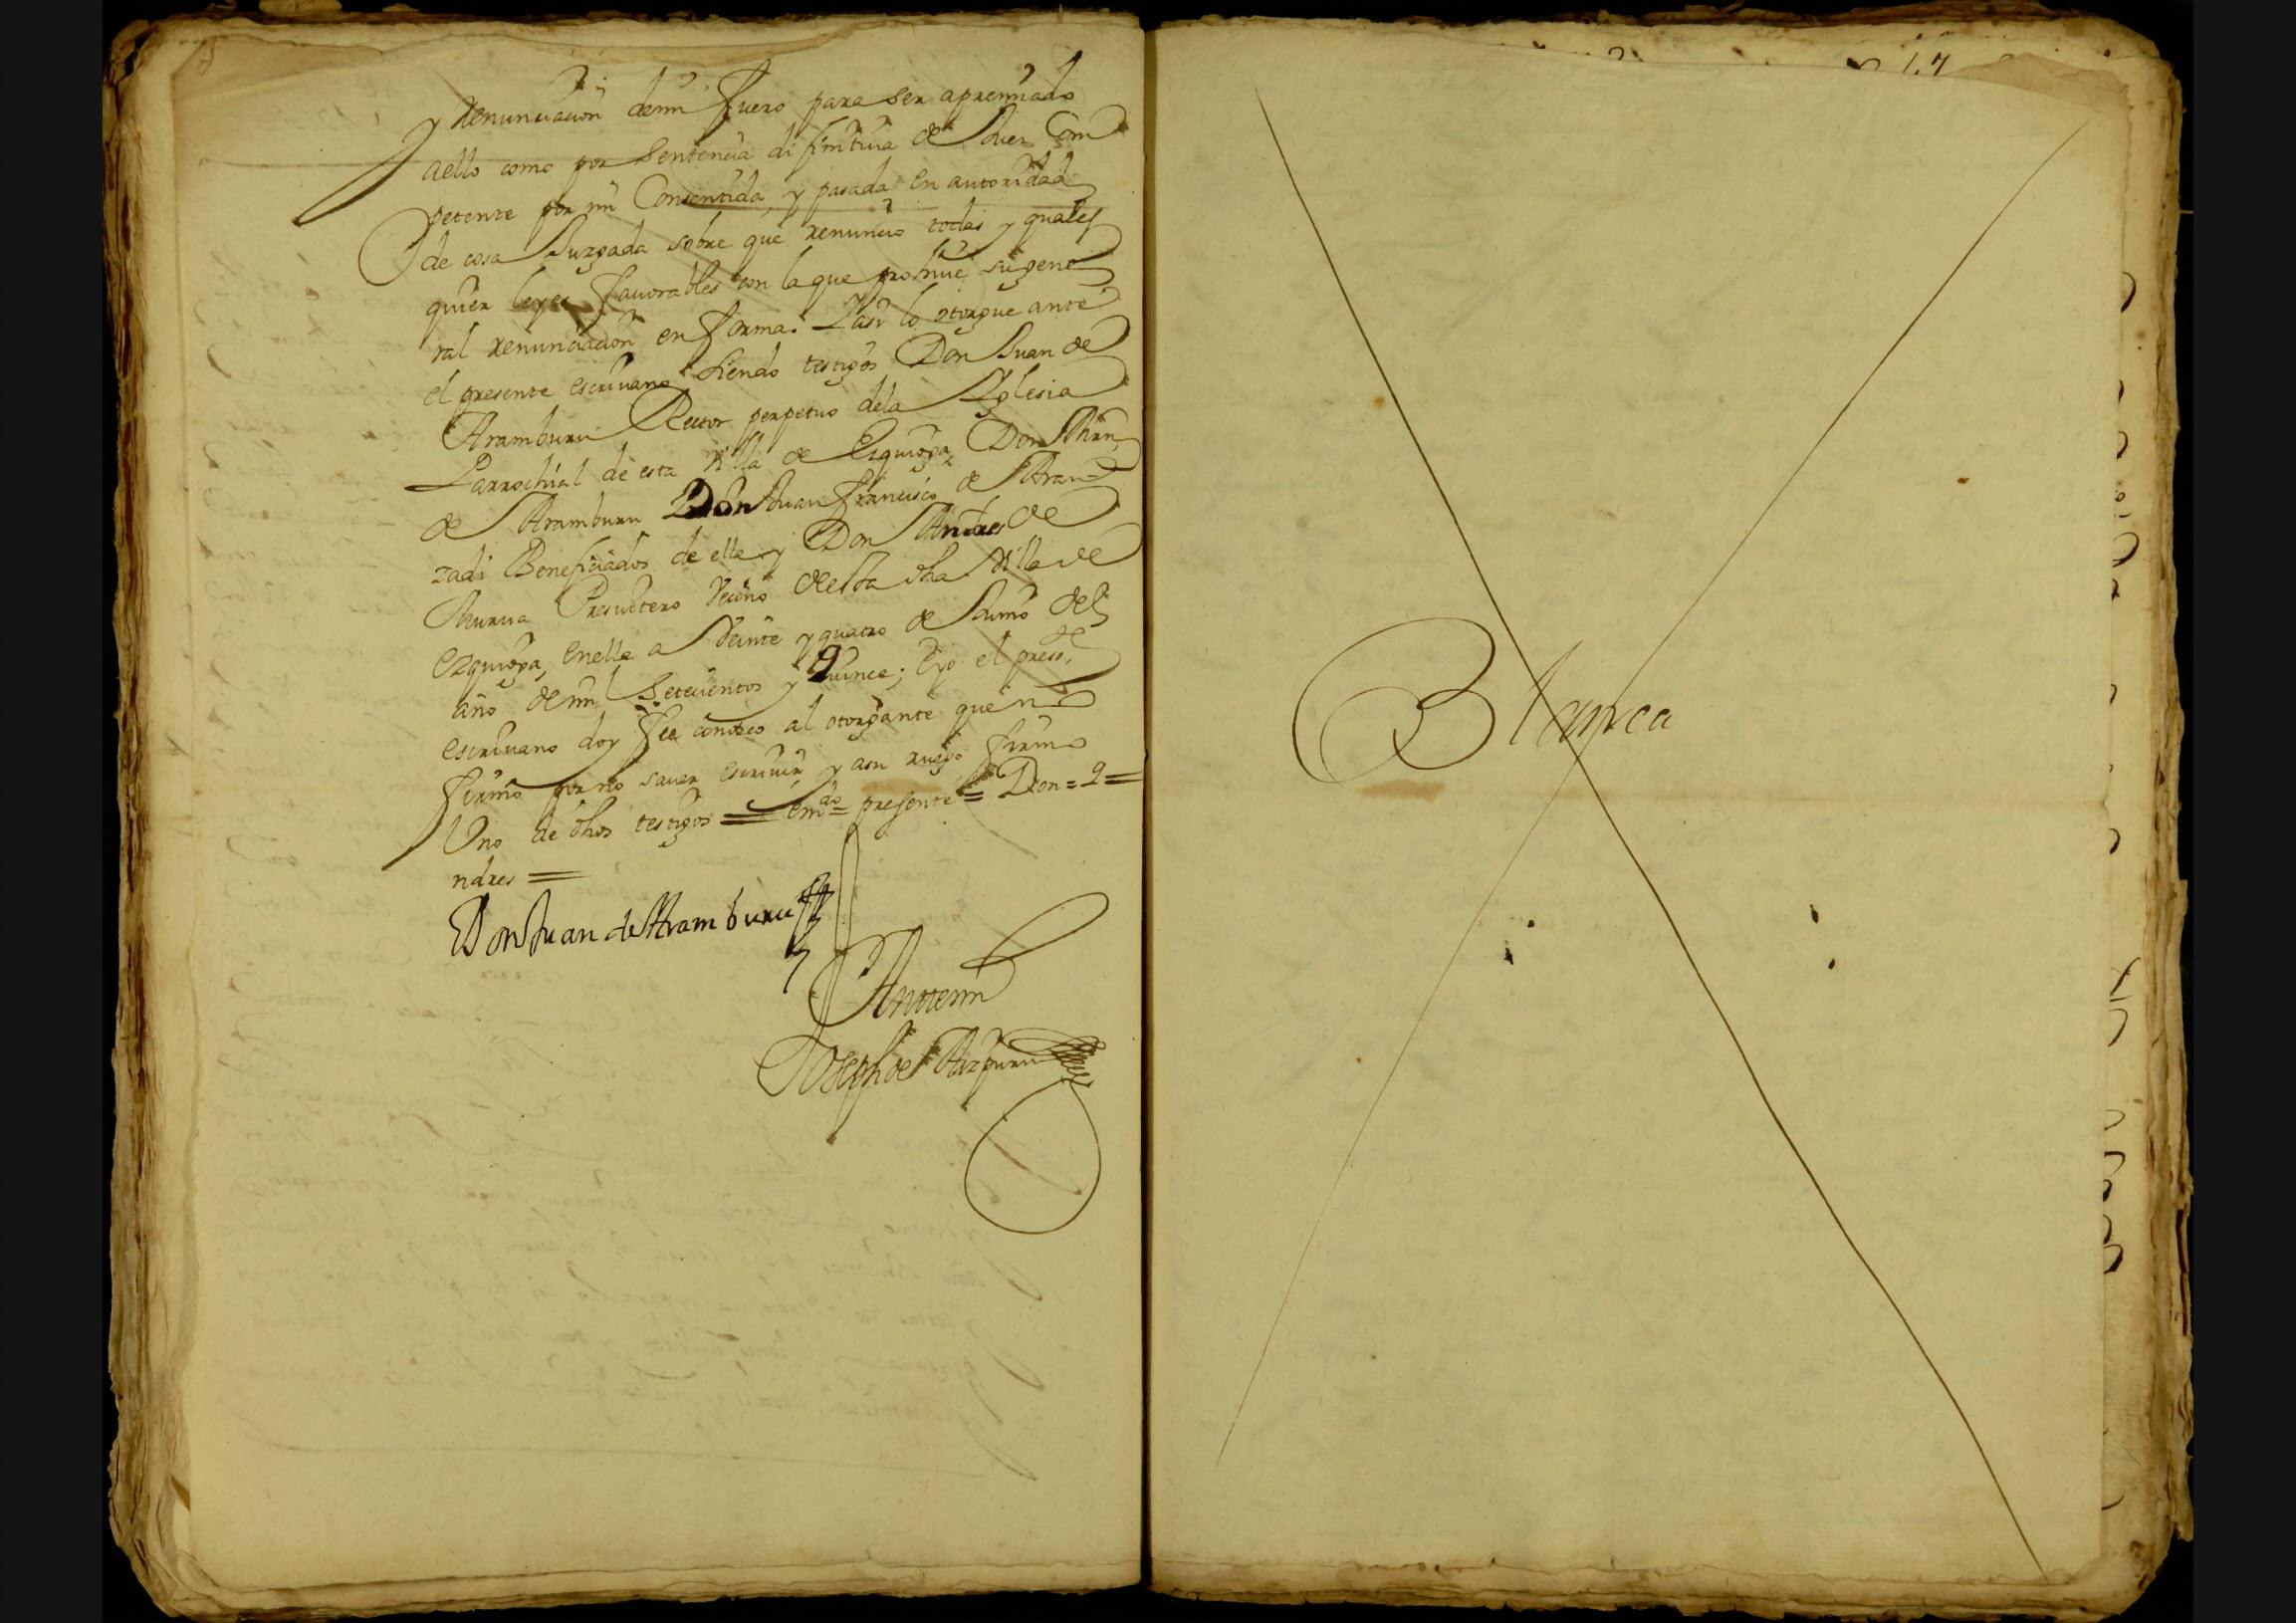 y Renunciacion demi fuero para ser apremiado
aello como por Sentencia difinitiua de Juez Com
petente por mi Consentida, y pasada en autoridad
de cosa Juzgada sobre que renuncio todas y quales
quier leyes fauorables con la que prohiue su gene
ral renunciacion en forma. Y asi lo otorgue ante
el presente escriuano siendo testigos Don Juan de
Aramburu Rector perpetuo dela Yglesia
Parrochial de esta Villa de Ezquioga, Don
de Aramburu Don Juan Francisco de Aran
zadi Beneficiados de ella y Don Andres de
Presuitero Vecino desta dha Villa de
Ezquioga, enella a Veinte y quatro de Junio del
año de mil Setecientos y quince; E yo el press.te
escriuano doy fee conozco al otorgante que no
firmó por no sauer escriuir y asu ruego firmo
Uno de dhos testigos = emdo = presente = Don = q =
ndres =
Don Juan de Aramburu
Antemi
Joseph de Aizpuru
Blanca
17